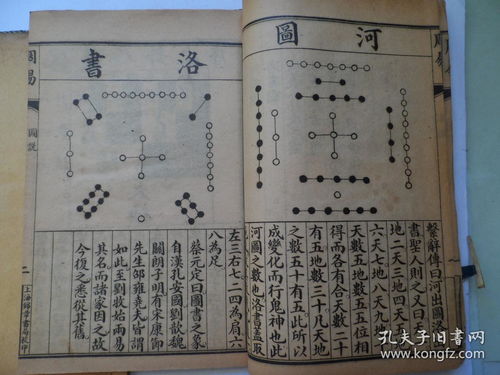 河圖
繫辭傳曰河出圖洛
書聖人則之又曰天
地二天三地四天五
六天七地八天九地
天數五地數五五位相
得而各有合天數二十
有五地數三十凡天地
之數五十有五此所以
成變化而行鬼神也此
河圖之數也洛書蓋取
洛書
左三右七二四為肩六
八為足
蔡元定曰圖書之象
自漢孔安國劉歆魏
關朗子明有宋康節
先生邵雍堯夫皆謂
如此至劉牧始兩易
其名而諸家因之故
今復之悉從其舊
周易
圖說
二
孔夫子旧书网
www.kongfz.com